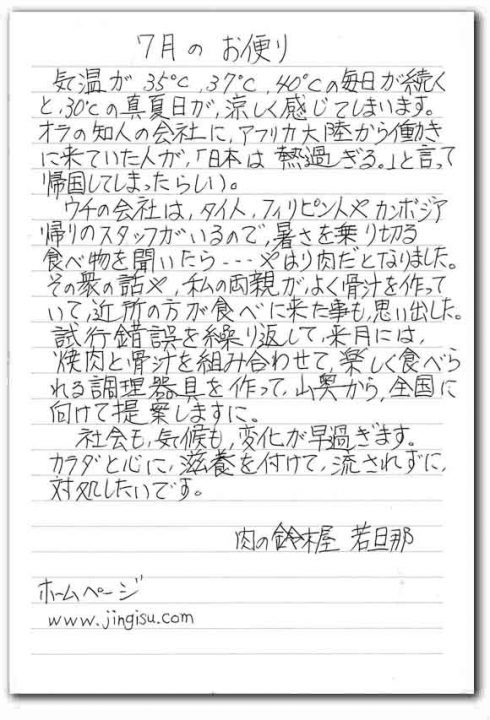 7月の お便り
気温が 35℃, 37℃, 40℃の毎日が続く
と, 30℃の真夏日が, 涼しく感じてしまいます。
オラの知人の会社に, アフリカ大陸から働き
に来ていた人が,「日本は 熱過ぎる。」と言って
帰国してしまったらしい)。
ウチの会社は, タイ人, フィリピン人や カンボジア
帰りのスタッフがいるので, 暑さを乗り切る
食べ物を聞いたら---やはり肉だとなりました。
その衆の話や, 私の両親が, よく骨汁を作って
いて, 近所の方が食べに来た事も, 思い出した。
試行錯誤を繰り返して, 来月には,
焼肉と骨汁を組み合わせて, 楽しく食べら
れる調理器具を作って, 山奥から, 全国に
向けて提案しますに。
社会も, 気候も, 変化が早過ぎます。
カラダと心に, 滋養を付けて, 流されずに,
対処したいです。
肉の鈴木屋 若旦那
ホームページ
www.jingisu.com